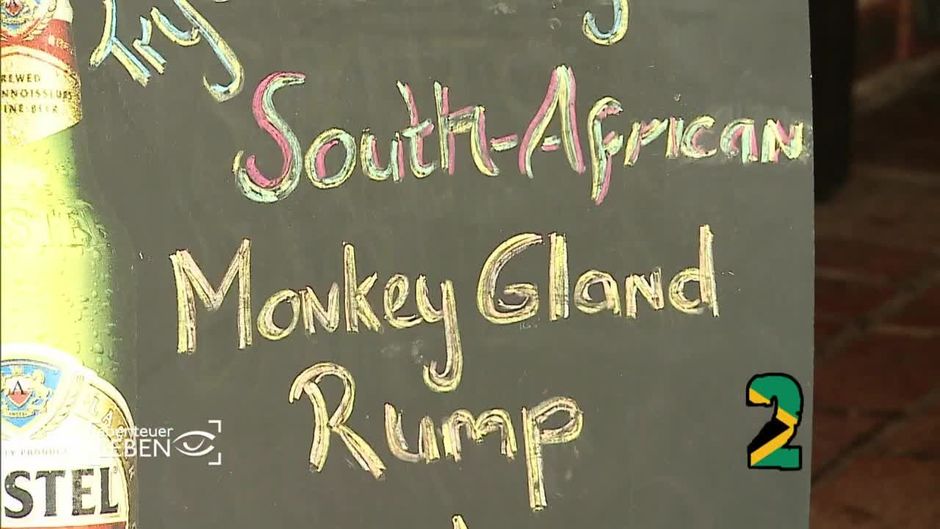 Try
South-African
Monkey Gland
Rump
BREWED
CONNOISSEURS
FINE BEER
A
STEL
abenteuer
LEBEN
2